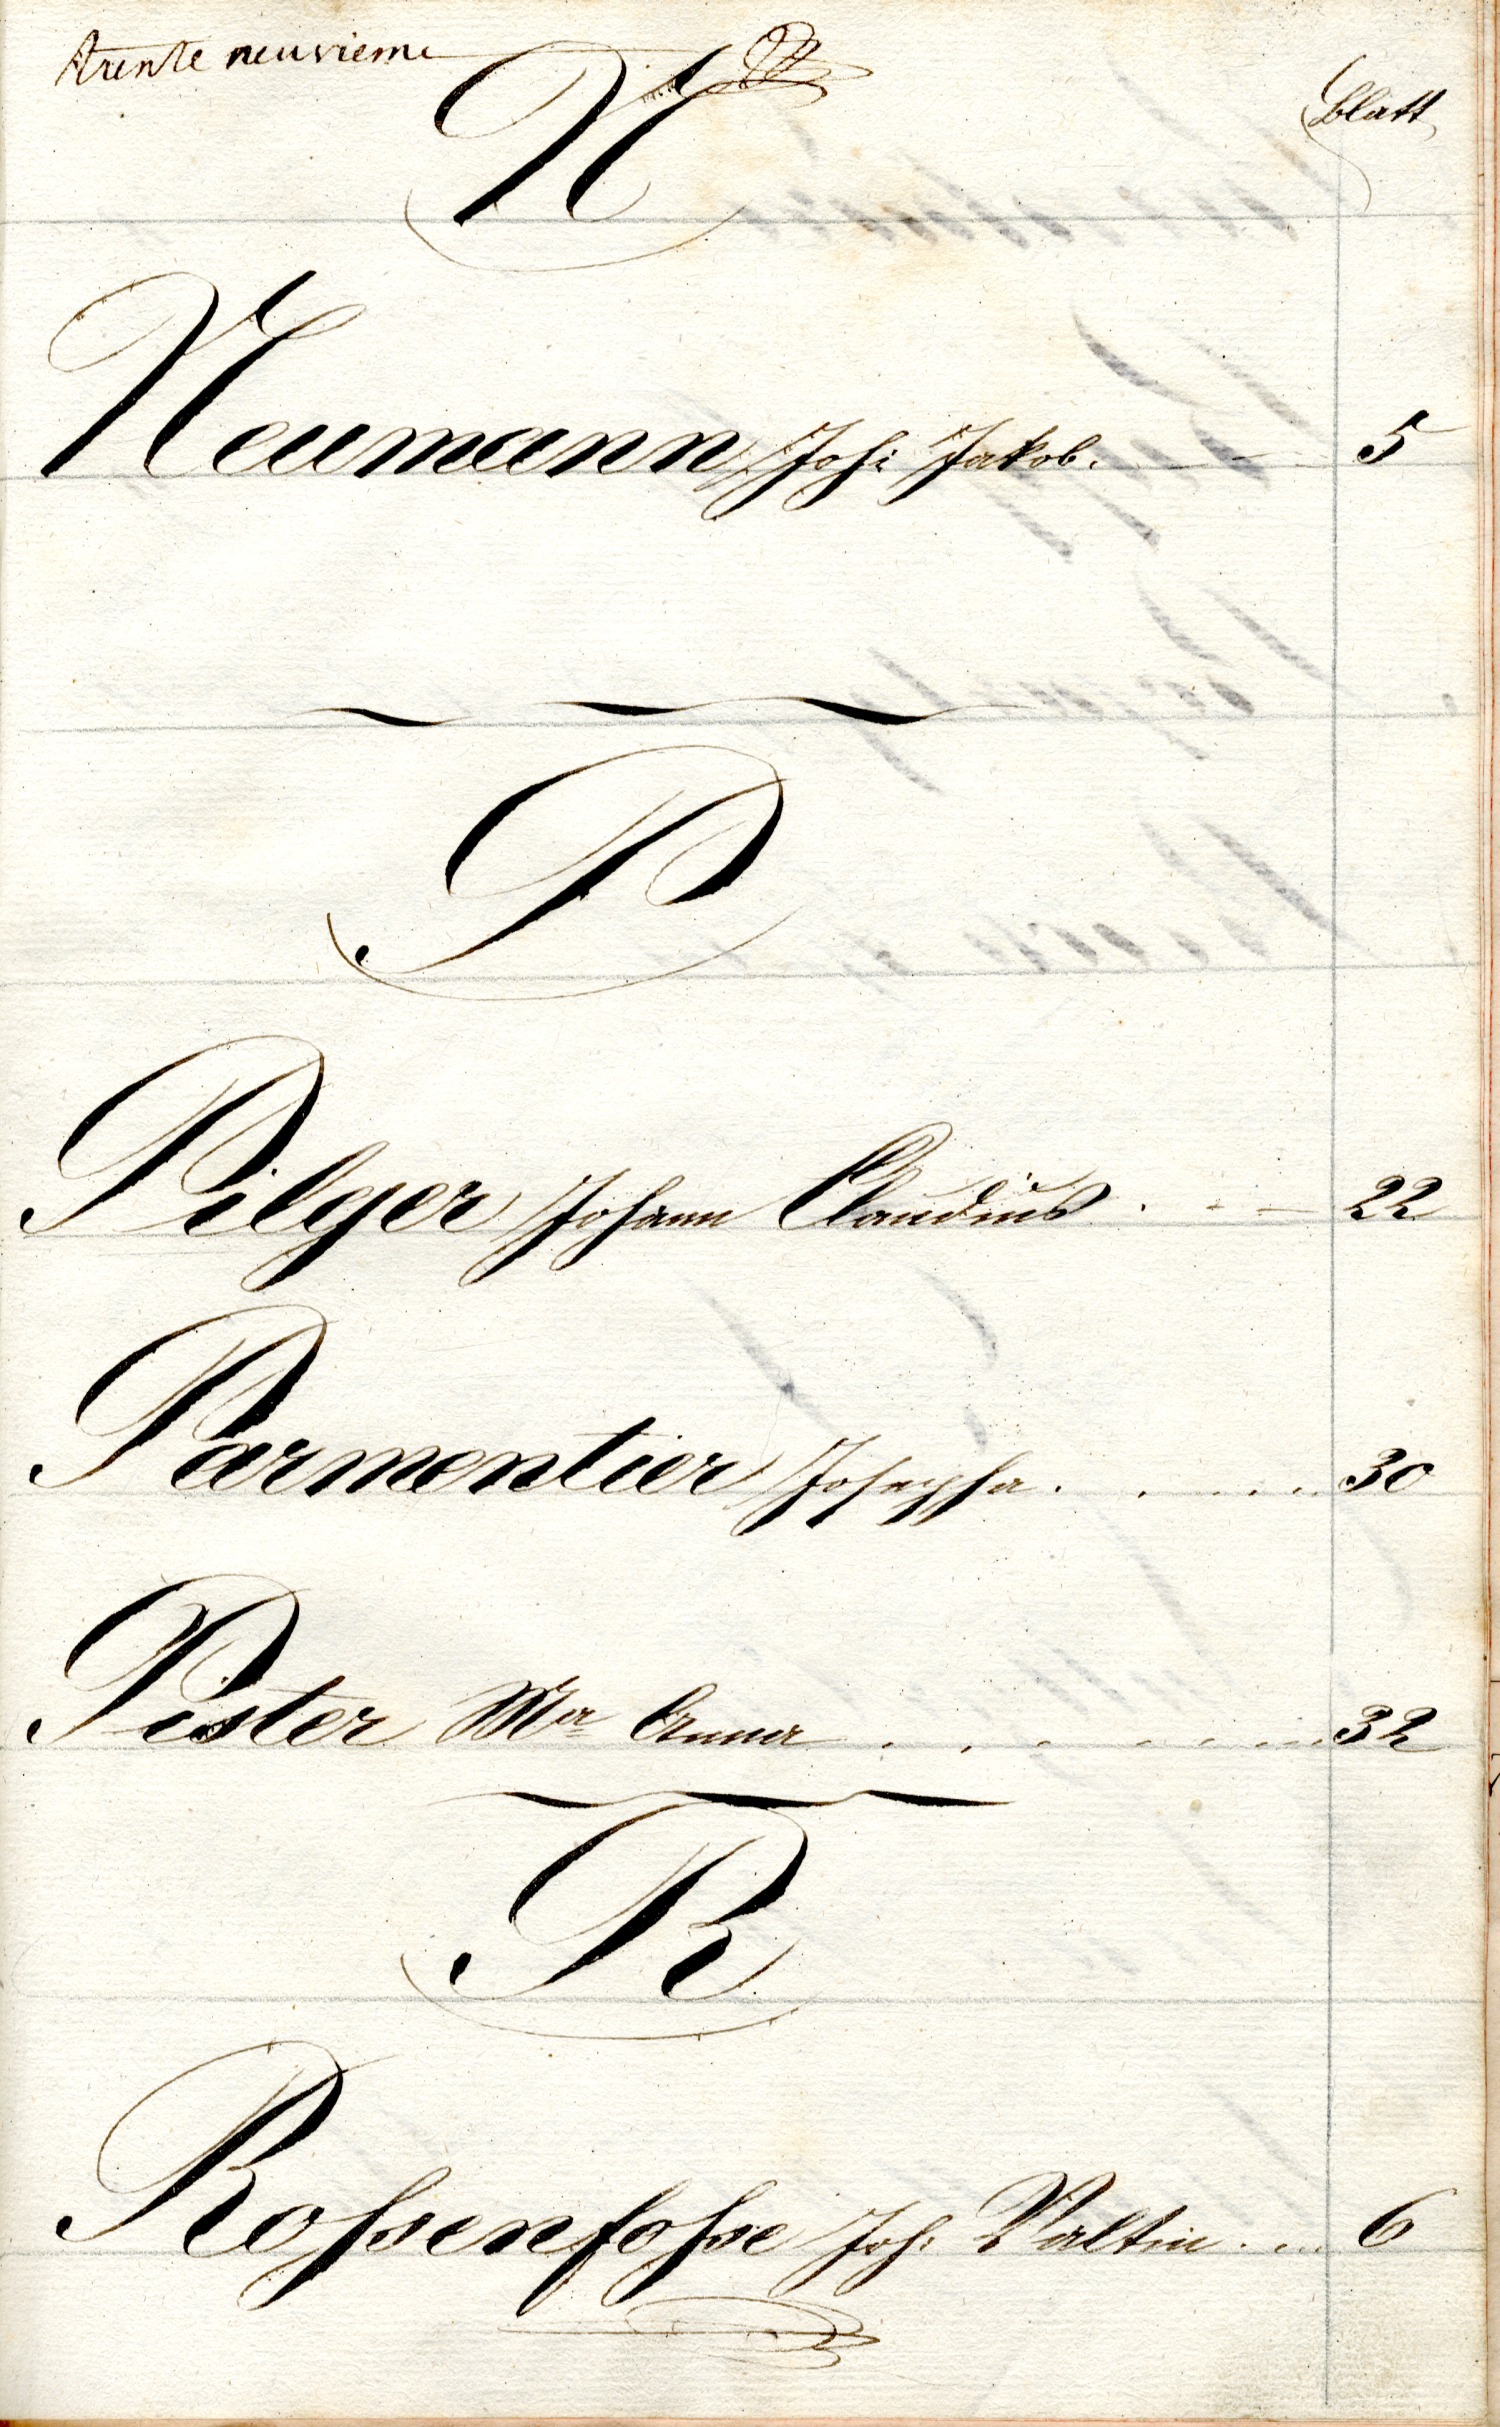 trente neuvieme
N
Blatt
Neumann Joh: Jakob. 5
P
Pilger Johann Claudius 22
Parmentier Josepha 30
Pister Ma Anna 32
R
Rossenfosse Joh: Valtin 6